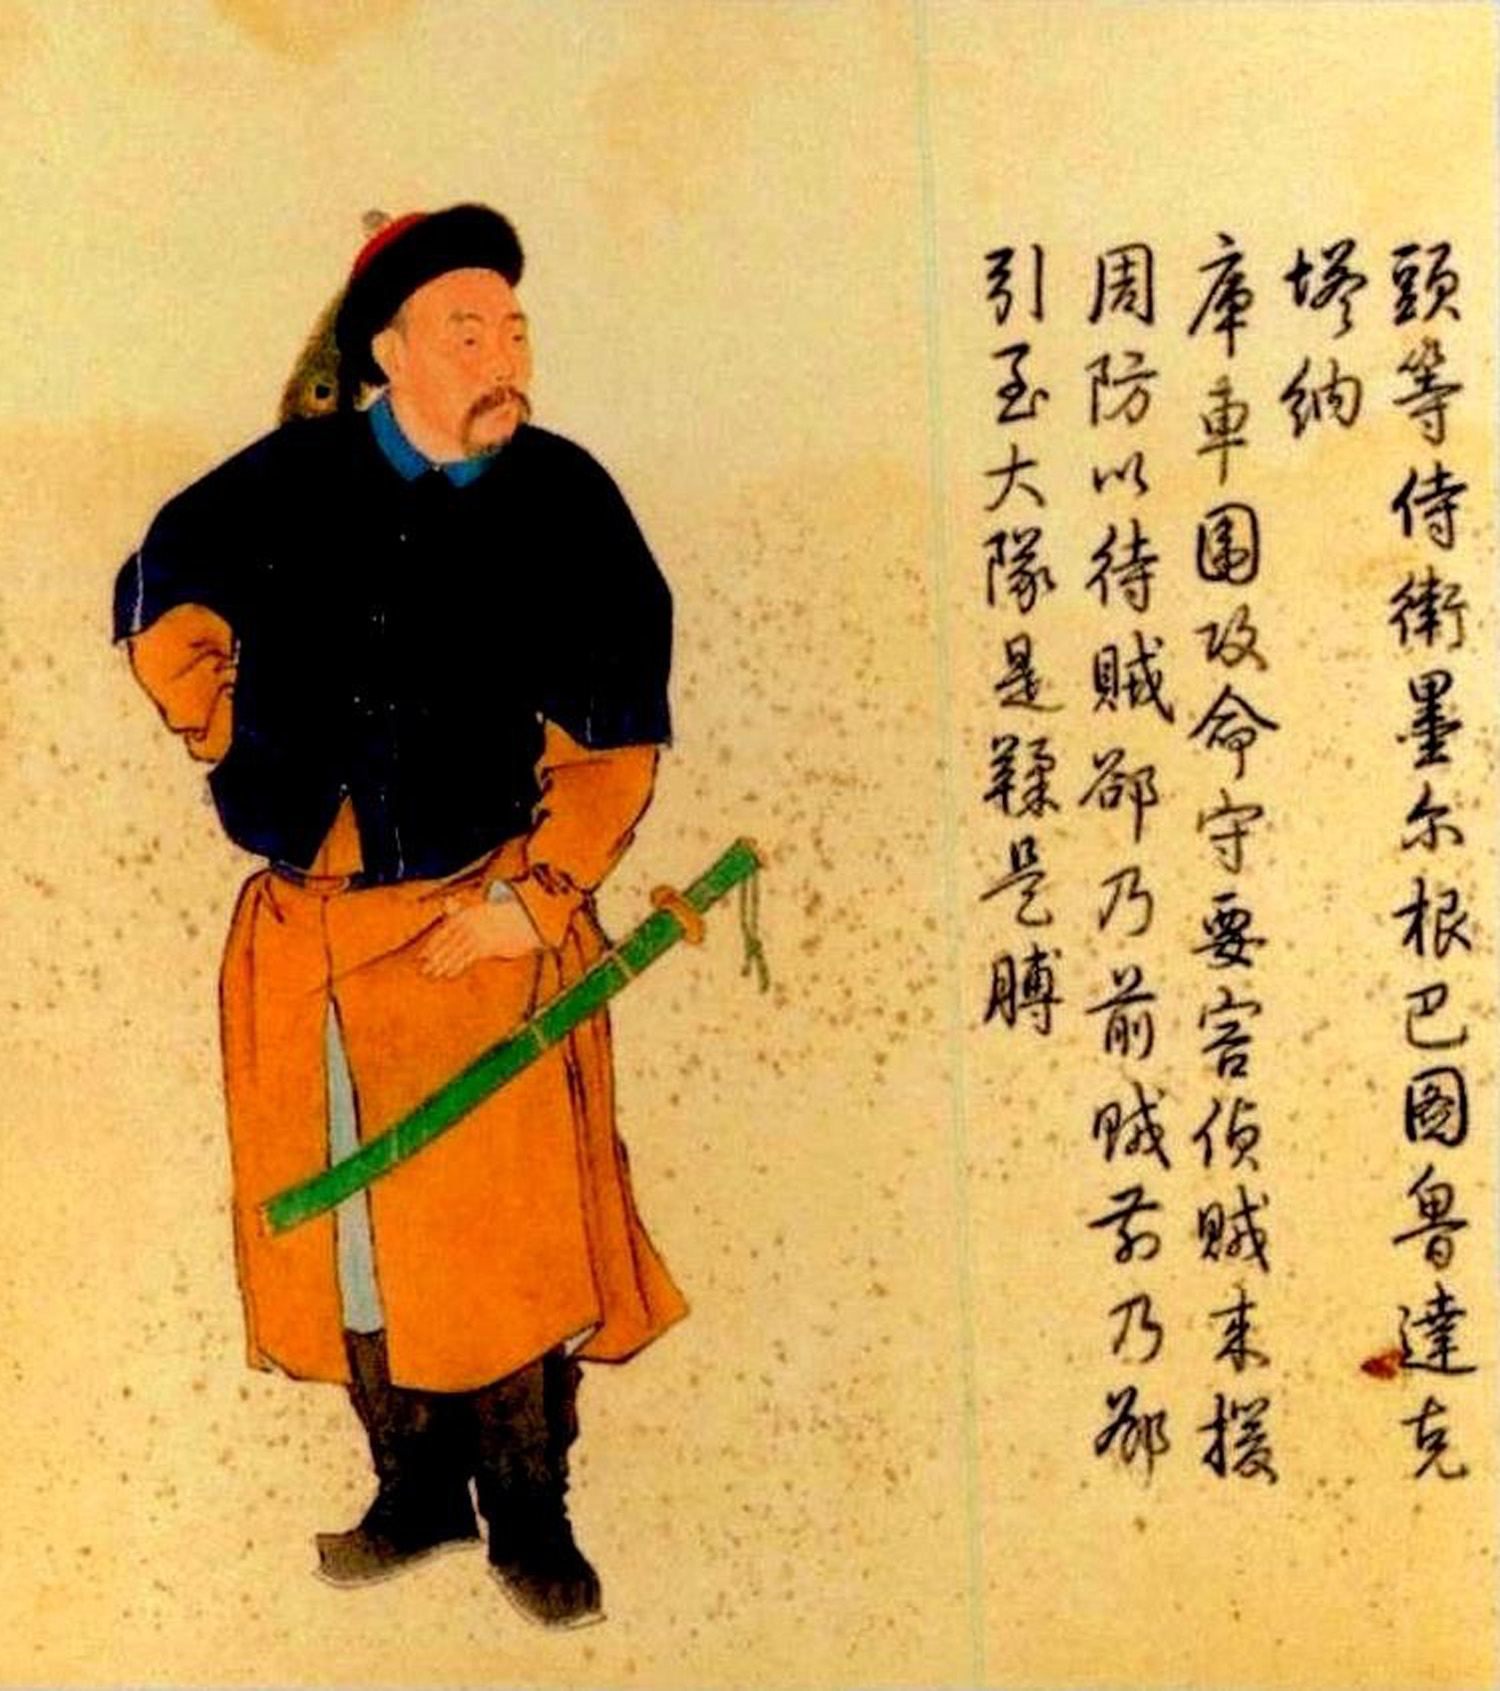 頭等侍衛墨尔根巴圖魯達克
塔納
庫車圍攻命守要害偵賊来援
周防以待賊郤乃前賊前乃郤
引至大隊是鞣是膊